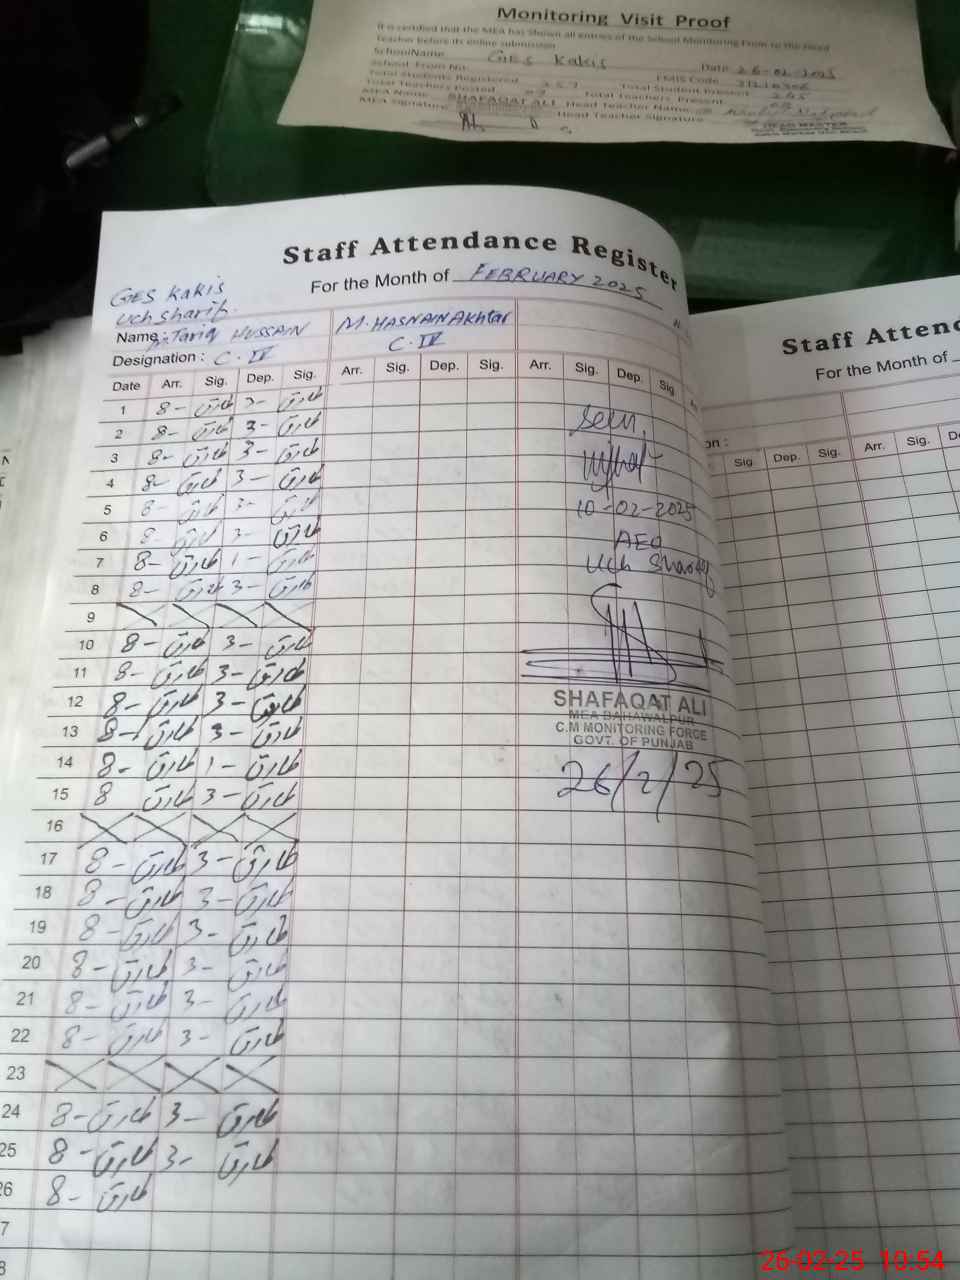 Monitoring Visit Proof
It is certified that the MEA has Shown all entries of the School Monitoring From to the Head
Teacher before its online submission
SchoolName GES Kakis Date 26-02-2025
School From No. EMIS Code
Total Students Registered 257 Total Student Present 245
Total Teachers Posted Total Teachers Present
MEA Name SHAFAQAT ALI Head Teacher Name
MEA Signature Head Teacher Signature
Staff Attendance Register
For the Month of FEBRUARY 2025
GES Kakis
Uch sharif.
Name: M. Tariq HUSSAIN M. HASNAIN Akhtar
Designation: C. IV C. IV
Date Arr. Sig. Dep. Sig. Arr. Sig. Dep. Sig. Arr. Sig. Dep. Sig.
1 8- طارق 3- طارق
2 8- طارق 3- طارق
3 8- طارق 3- طارق
4 8- طارق 3- طارق
5 8- طارق 3- طارق
6 8- طارق 3- طارق
7 8- طارق 1- طارق
8 8- طارق 3- طارق
9
10 8- طارق 3- طارق
11 8- طارق 3- طارق
12 8- طارق 3- طارق
13 8- طارق 3- طارق
14 8- طارق 1- طارق
15 8 طارق 3- طارق
16
17 8- طارق 3- طارق
18 8- طارق 3- طارق
19 8- طارق 3- طارق
20 8- طارق 3- طارق
21 8- طارق 3- طارق
22 8- طارق 3- طارق
23
24 8- طارق 3- طارق
25 8- طارق 3- طارق
26 8- طارق
7
8
Seen
10-02-2025
AEO
Uch Sharif
SHAFAQAT ALI
MEA BAHAWALPUR
C.M MONITORING FORCE
GOVT. OF PUNJAB
26/2/25
Staff Attend
For the Month of
on :
Sig. Dep. Sig. Arr. Sig. De
26-02-25 10:54